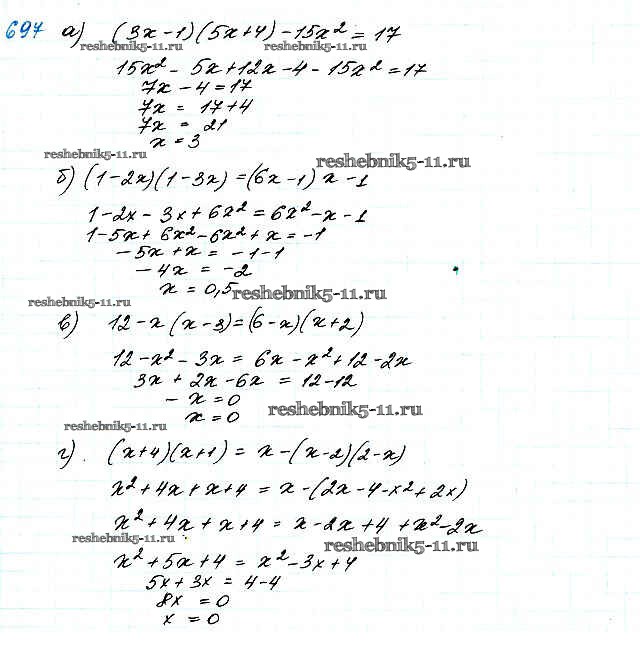 697 а) (3x-1)(5x+4)-15x²=17
reshebnik5-11.ru reshebnik5-11.ru
15x²-5x+12x-4-15x²=17
7x-4=17
7x=17+4
7x=21
x=3
reshebnik5-11.ru reshebnik5-11.ru
б) (1-2x)(1-3x)=(6x-1)x-1
1-2x-3x+6x²=6x²-x-1
1-5x+6x²-6x²+x=-1
-5x+x=-1-1
-4x=-2
x=0,5
reshebnik5-11.ru
reshebnik5-11.ru
в) 12-x(x-3)=(6-x)(x+2)
12-x²-3x=6x-x²+12-2x
3x+2x-6x=12-12
-x=0
x=0
reshebnik5-11.ru
reshebnik5-11.ru
г). (x+4)(x+1)=x-(x-2)(2-x)
x²+4x+x+4=x-(2x-4-x²+2x)
x²+4x+x+4=x-2x+4+x²-2x
reshebnik5-11.ru reshebnik5-11.ru
x²+5x+4=x²-3x+4
5x+3x=4-4
8x=0
x=0